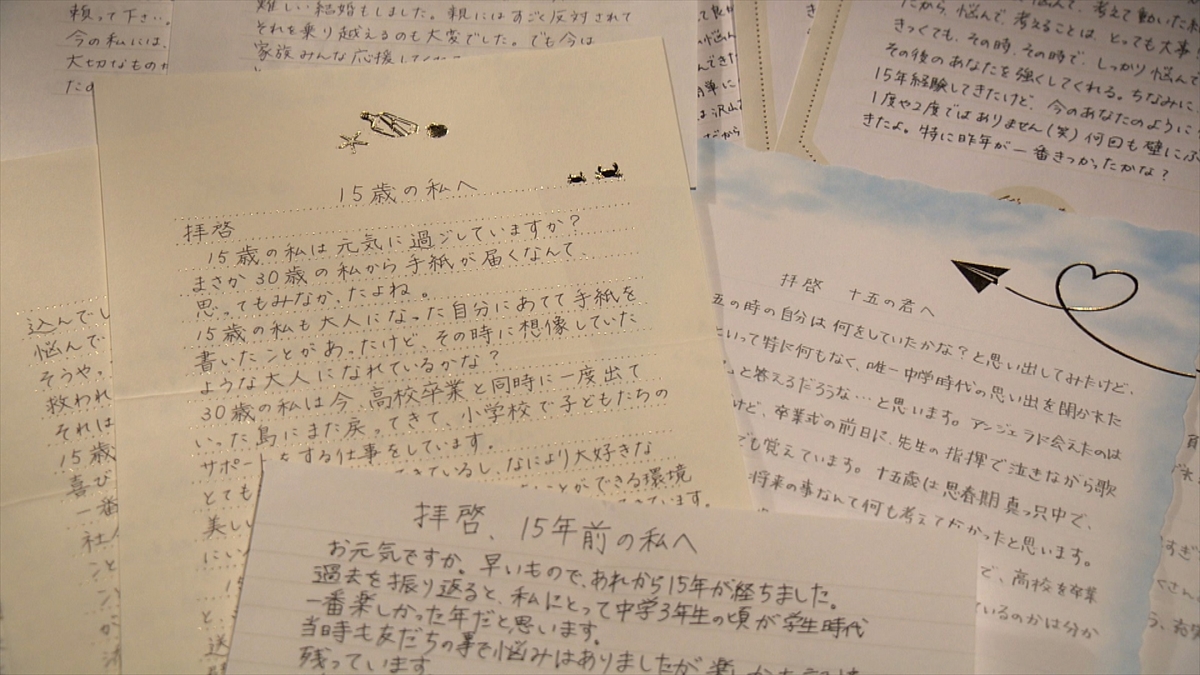 頼って下さい。
今の私には、
大切なものが
難しい結婚もしました。親にはすごく反対されて
それを乗り越えるのも大変でした。でも今は
家族みんな応援してくれて
15歳の私へ
拝啓
15歳の私は元気に過ごしていますか?
まさか30歳の私から手紙が届くなんて、
思ってもみなかったよね。
15歳の私も大人になった自分にあてて手紙を
書いたことがあったけど、その時に想像していた
ような大人になれているかな?
30歳の私は今、高校卒業と同時に一度出て
いった島にまた戻ってきて、小学校で子どもたちの
サポートをする仕事をしています。
きているし、なにより大好きな
ことができる環境
とても
美し
込んでし
悩んで
そうや。
救われ
それは
15歳
喜び
一番
社
拝啓、15年前の私へ
お元気ですか。早いもので、あれから15年が経ちました。
過去を振り返ると、私にとって中学3年生の頃が学生時代
一番楽しかった年だと思います。
当時も友だちの事で悩みはありましたが
残っています
考えて動いた
だから、悩んで、考えることは、とっても大事
きっくても、その時、その時で、しっかり悩んで
その後のあなたを強くしてくれる。ちなみに
15年経験してきたけど、今のあなたのように
1度や2度ではありません(笑)何回も壁にぶ
きたよ。特に昨年が一番きつかったかな?
拝啓 十五の君へ
五の時の自分は何をしていたかな?と思い出してみたけど、
といって特に何もなく、唯一中学時代の思い出を聞かれた
と答えるだろうな…と思います。アンジェラに会えたのは
けど、卒業式の前日に、先生の指揮で泣きながら歌
でも覚えています。十五歳は思春期真っ只中で、
将来の事なんて何も考えてなかったと思います。
で、高校を卒業
いるのかは分か